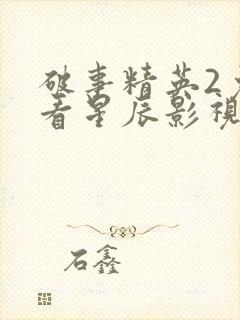 破事精英2
看星辰影視
石鑫